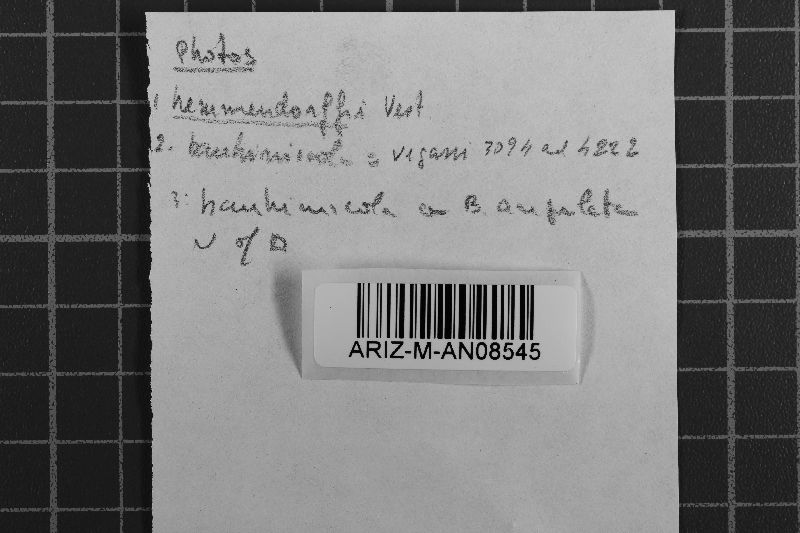 Photos
1. hemmendorffii Vest.
2. bauhinicola = vigasii 3094 ad 4222
3. bauhinicola on B. angulata
N of D
ARIZ-M-AN08545